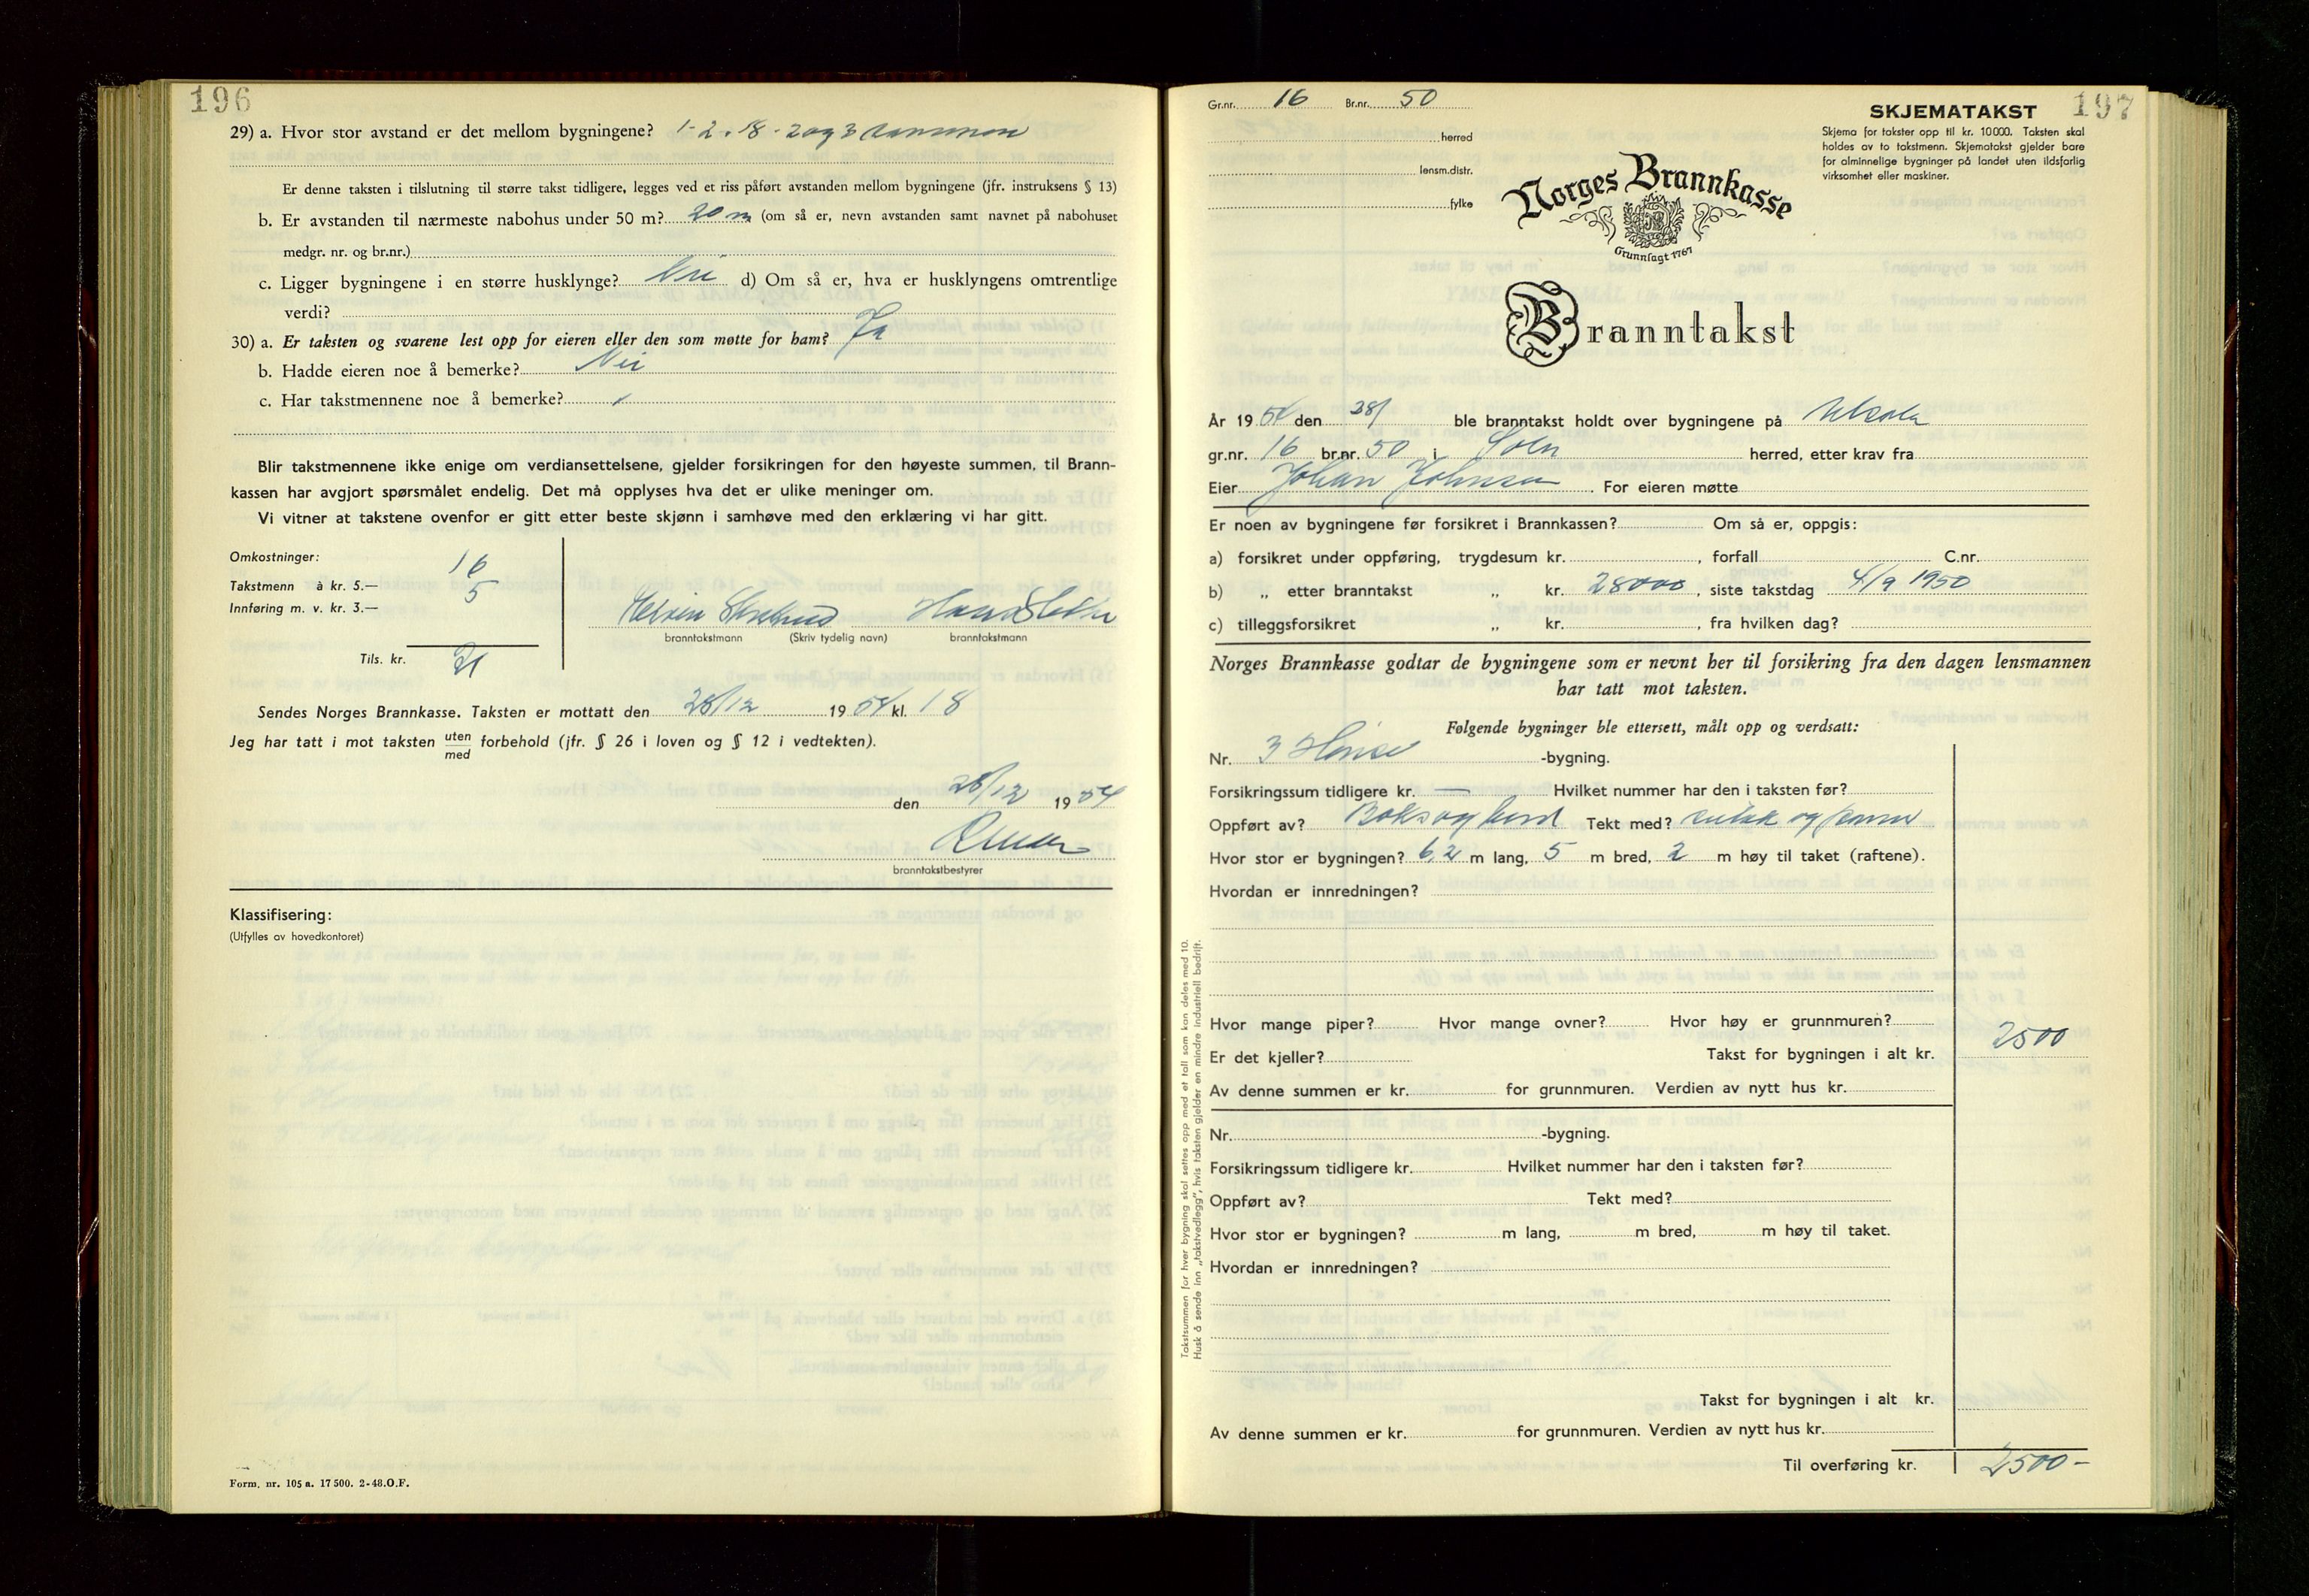 196
29) a. Hvor stor avstand er det mellom bygningene? 1-2. 18 - 2 og 3 sammen
Er denne taksten i tilslutning til større takst tidligere, legges ved et riss påført avstanden mellom bygningene (jfr. instruksens § 13)
b. Er avstanden til nærmeste nabohus under 50 m? 20 m (om så er, nevn avstanden samt navnet på nabohuset
medgr. nr. og br.nr.)
c. Ligger bygningene i en større husklynge? Nei d) Om så er, hva er husklyngens omtrentlige
verdi?
30) a. Er taksten og svarene lest opp for eieren eller den som møtte for ham? Ja
b. Hadde eieren noe å bemerke? Nei
c. Har takstmennene noe å bemerke?
Blir takstmennene ikke enige om verdiansettelsene, gjelder forsikringen for den høyeste summen, til Brann-
kassen har avgjort spørsmålet endelig. Det må opplyses hva det er ulike meninger om.
Vi vitner at takstene ovenfor er gitt etter beste skjønn i samhøve med den erklæring vi har gitt.
Omkostninger:
Takstmenn à kr. 5.— 16
Innføring m. v. kr. 3.— 5
branntakstmann (Skriv tydelig navn) branntakstmann
Tils. kr. 21
Sendes Norges Brannkasse. Taksten er mottatt den 28/12 1954 kl. 18
Jeg har tatt i mot taksten uten
med forbehold (jfr. § 26 i loven og § 12 i vedtekten).
den 28/12 1954
branntakstbestyrer
Klassifisering:
(Utfylles av hovedkontoret)
Form. nr. 105 a. 17 500. 2-48. O.F.
197
Gr.nr. 16 Br.nr. 50
herred
lensm.distr.
fylke
SKJEMATAKST
Skjema for takster opp til kr. 10 000. Taksten skal
holdes av to takstmenn. Skjematakst gjelder bare
for alminnelige bygninger på landet uten ildsfarlig
virksomhet eller maskiner.
Norges Brannkasse
Grunnlagt 1767
Branntakst
År 1954 den 28/ ble branntakst holdt over bygningene på
gr.nr. 16 br.nr. 50 i Sola herred, etter krav fra
Eier Johan Johnsen For eieren møtte
Er noen av bygningene før forsikret i Brannkassen? Om så er, oppgis:
a) forsikret under oppføring, trygdesum kr. , forfall C.nr.
b) „ etter branntakst „ kr. 28000, siste takstdag 4/9 1950
c) tilleggsforsikret „ kr. , fra hvilken dag?
Norges Brannkasse godtar de bygningene som er nevnt her til forsikring fra den dagen lensmannen
har tatt mot taksten.
Følgende bygninger ble ettersett, målt opp og verdsatt:
Nr. 3 Hønse -bygning.
Forsikringssum tidligere kr. — Hvilket nummer har den i taksten før?
Oppført av? Tekt med?
Hvor stor er bygningen? 6,2 m lang, 5 m bred, 2 m høy til taket (raftene).
Hvordan er innredningen?
Hvor mange piper? Hvor mange ovner? Hvor høy er grunnmuren?
Er det kjeller? Takst for bygningen i alt kr. 2500
Av denne summen er kr. for grunnmuren. Verdien av nytt hus kr.
Nr. -bygning.
Forsikringssum tidligere kr. Hvilket nummer har den i taksten før?
Oppført av? Tekt med?
Hvor stor er bygningen? m lang, m bred, m høy til taket.
Hvordan er innredningen?
Takst for bygningen i alt kr.
Av denne summen er kr. for grunnmuren. Verdien av nytt hus kr.
Til overføring kr. 2500-
Takstsummen for hver bygning skal settes opp med et tall som kan deles med 10.
Husk å sende inn „takstvedlegg", hvis taksten gjelder en mindre industriell bedrift.